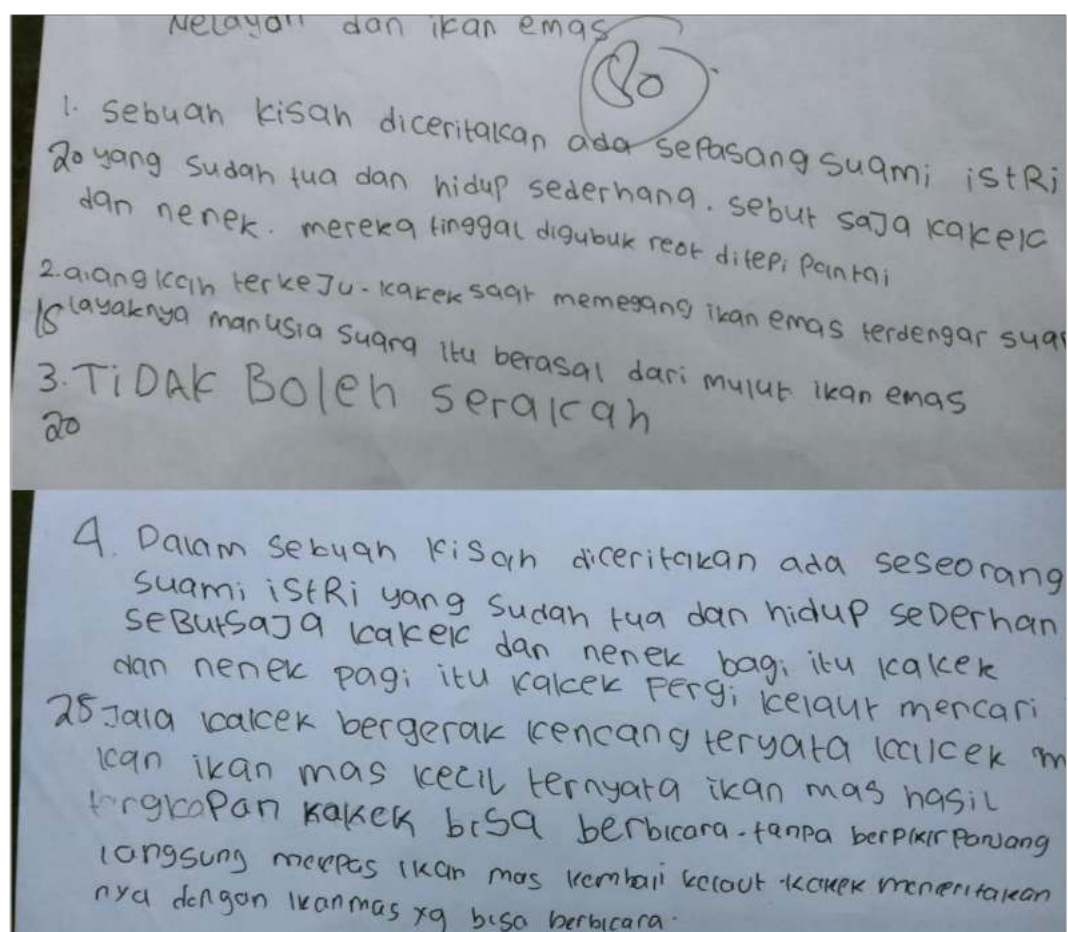 Nelayan dan ikan emas
80
1. sebuah kisah diceritakan ada sepasang suami istRi
20 yang sudah tua dan hidup sederhana. sebut saJa kakek
dan nenek. mereka tinggal digubuk reot ditepi Pantai
2. kah terkeJu-kakek saat memegang ikan emas terdengar suar
15 layaknya manusia suara itu berasal dari mulut ikan emas
3. TiDAK Boleh serakah
20
4. Dalam sebuah kisah diceritakan ada seseorang
suami istRi yang sudah tua dan hidup seDerhan
seButsaJa kakek dan nenek bagi itu kakek
dan nenek pagi itu kakek Pergi kelaut mencari
25 Jala kakek bergerak kencang teryata kakek m
kan ikan mas kecil ternyata ikan mas hasil
tangkaPan kakek bisa berbicara. tanpa berpikir Panjang
langsung ikan mas kembali kelaut kakek menceritakan
nya dengan ikanmas yg bisa berbicara.